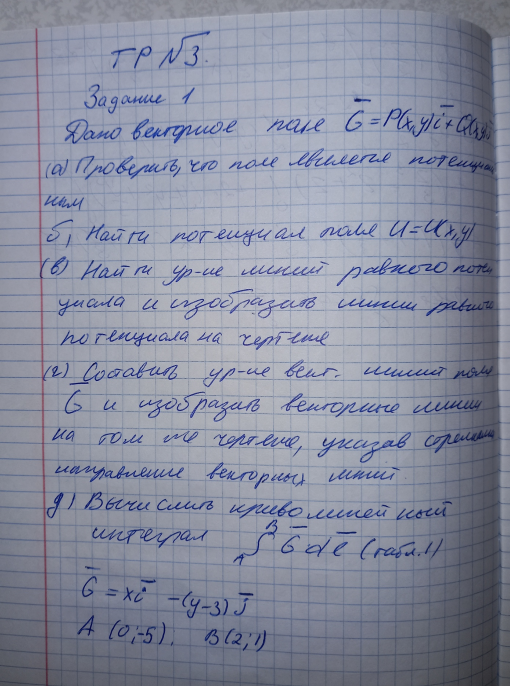 ТР №3.
Задание 1
Дано векторное поле G̅ = P(x,y)i̅ + Q(x,y)j̅
(а) Проверить, что поле является потенциаль
ным
б) Найти потенциал поля U = U(x,y)
(в) Найти ур-ие линий равного потен
циала и изобразить линии равного
потенциала на чертеже
(г) Составить ур-ие вект. линий поля
G̅ и изобразить векторные линии
на том же чертеже, указав стрелками
направление векторных линий
д) Вычислить криволинейный
интеграл ∫ᴬᴮ G̅ dℓ̅ (табл.1)
G̅ = xi̅ -(y-3)j̅
A (0;-5). B(2;1)